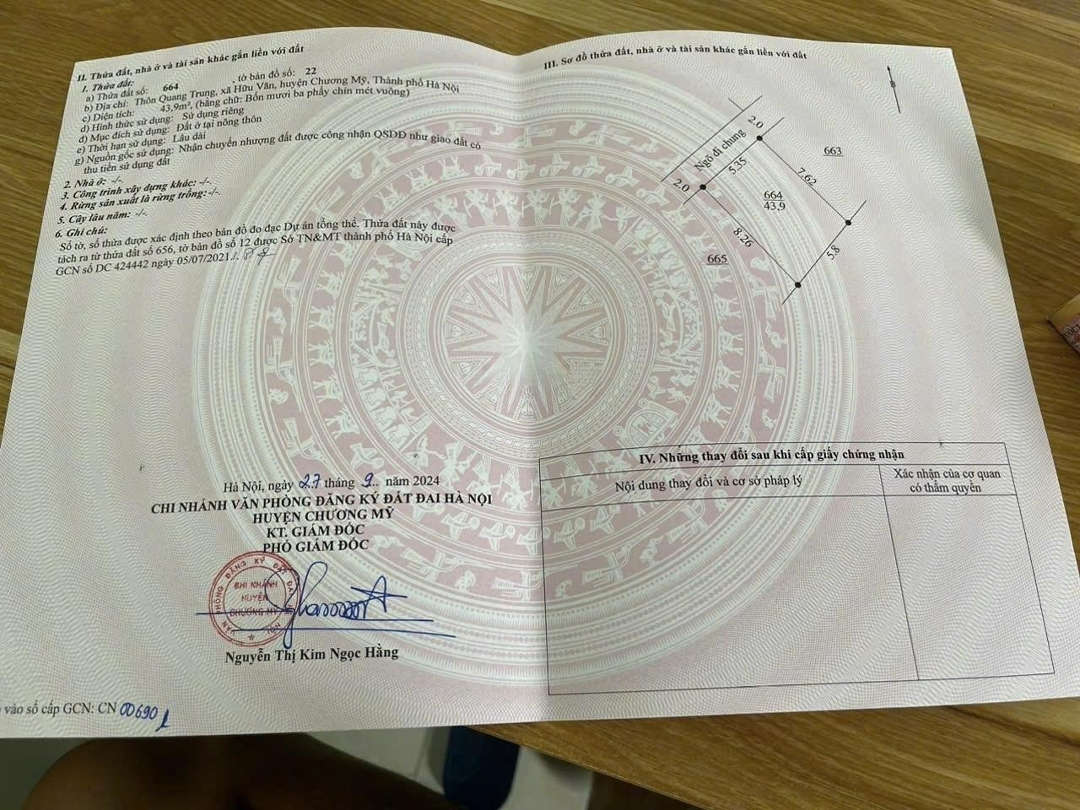 II. Thửa đất, nhà ở và tài sản khác gắn liền với đất
1. Thửa đất:
a) Thửa đất số: 664 , tờ bản đồ số: 22
b) Địa chỉ: Thôn Quang Trung, xã Hữu Văn, huyện Chương Mỹ, Thành phố Hà Nội
c) Diện tích: 43,9m², (bằng chữ: Bốn mươi ba phẩy chín mét vuông)
d) Hình thức sử dụng: Sử dụng riêng
đ) Mục đích sử dụng: Đất ở tại nông thôn
e) Thời hạn sử dụng: Lâu dài
g) Nguồn gốc sử dụng: Nhận chuyển nhượng đất được công nhận QSDĐ như giao đất có
thu tiền sử dụng đất
2. Nhà ở: -/-
3. Công trình xây dựng khác: -/-
4. Rừng sản xuất là rừng trồng:-/-
5. Cây lâu năm: -/-
6. Ghi chú:
Số tờ, số thửa được xác định theo bản đồ đo đạc Dự án tổng thể. Thửa đất này được
tách ra từ thửa đất số 656, tờ bản đồ số 12 được Sở TN&MT thành phố Hà Nội cấp
GCN số DC 424442 ngày 05/07/2021./.
Hà Nội, ngày 27 tháng 9 năm 2024
CHI NHÁNH VĂN PHÒNG ĐĂNG KÝ ĐẤT ĐAI HÀ NỘI
HUYỆN CHƯƠNG MỸ
KT. GIÁM ĐỐC
PHÓ GIÁM ĐỐC
VĂN PHÒNG ĐĂNG KÝ ĐẤT ĐAI
CHI NHÁNH
HUYỆN
CHƯƠNG MỸ
NỘI
Nguyễn Thị Kim Ngọc Hằng
vào sổ cấp GCN: CN 006901
III. Sơ đồ thửa đất, nhà ở và tài sản khác gắn liền với đất
B
2.0
Ngõ đi chung
5.35
2.0
663
7.62
664
43,9
8.26
665
5.8
IV. Những thay đổi sau khi cấp giấy chứng nhận
Nội dung thay đổi và cơ sở pháp lý
Xác nhận của cơ quan
có thẩm quyền